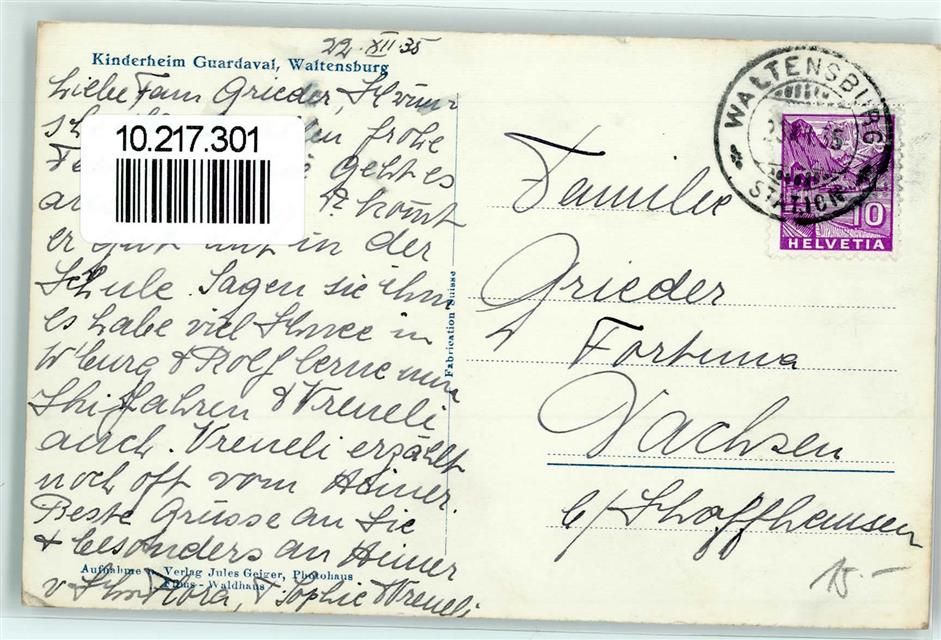 22. XII 35
Kinderheim Guardaval, Waltensburg
Liebe Fam Grieder, Ich wün
sch frohe
geht es
kommt
er in der
Schule. Sagen sie ihm
es habe viel Schnee in
W'burg & Rolf lerne nun
Skifahren & Vreneli
auch. Vreneli erzählt
noch oft vom Heiner.
Beste Grüsse an Sie
& besonders an Heiner
v. Flora, Sophie & Vreneli
Aufnahme u. Verlag Jules Geiger, Photohaus
Flims - Waldhaus
10.217.301
Fabrication Suisse
WALTENSBURG
STATION
10
HELVETIA
Familie
Grieder
Fortuna
Dachsen
b/Schaffhausen
15.-